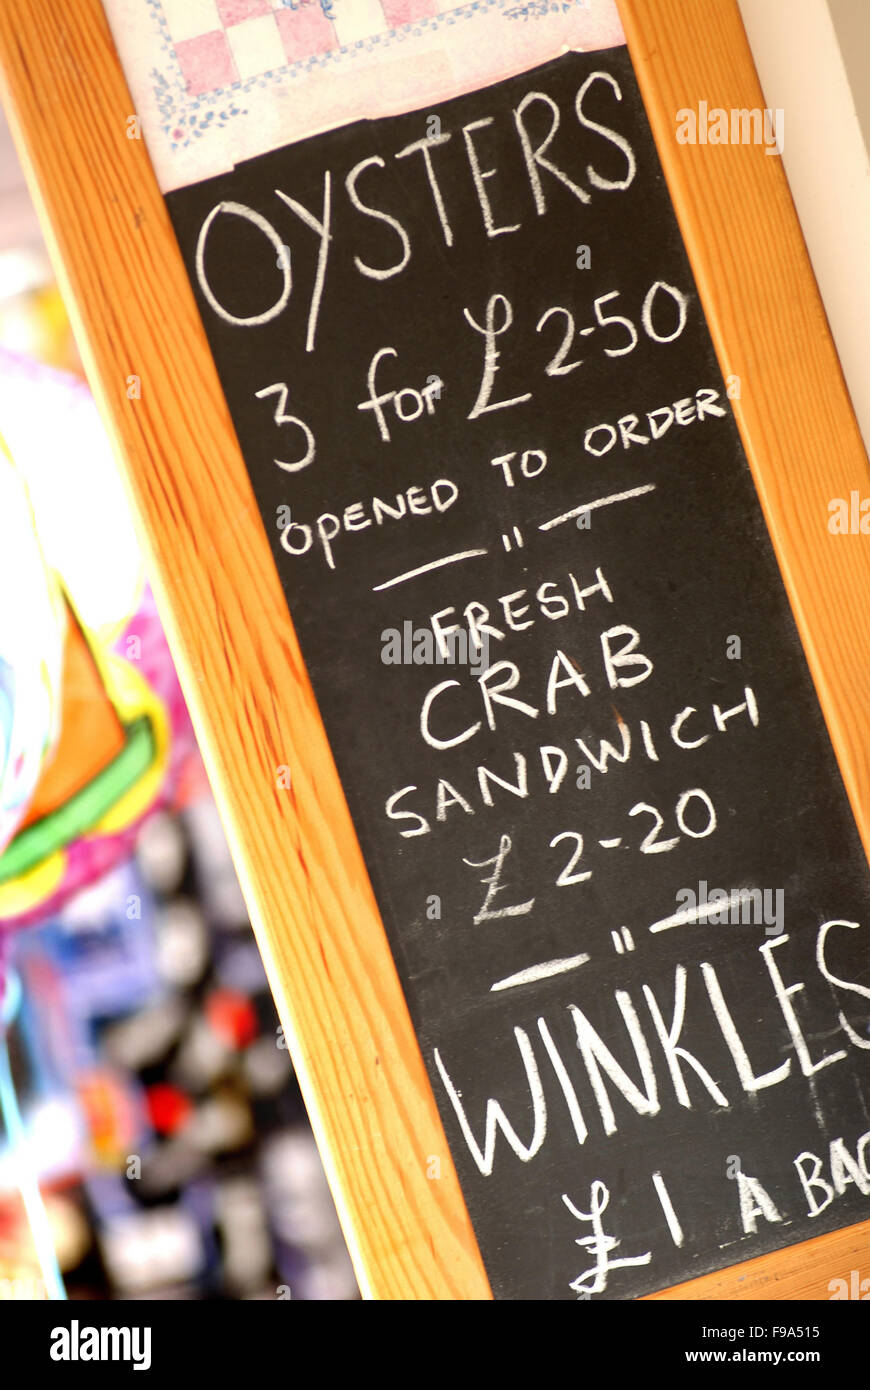 OYSTERS
3 for £2-50
OPENED TO ORDER
— " —
FRESH
CRAB
SANDWICH
£2-20
— " —
WINKLES
£1 A BAG
alamy stock photo
F9A515
www.alamy.com